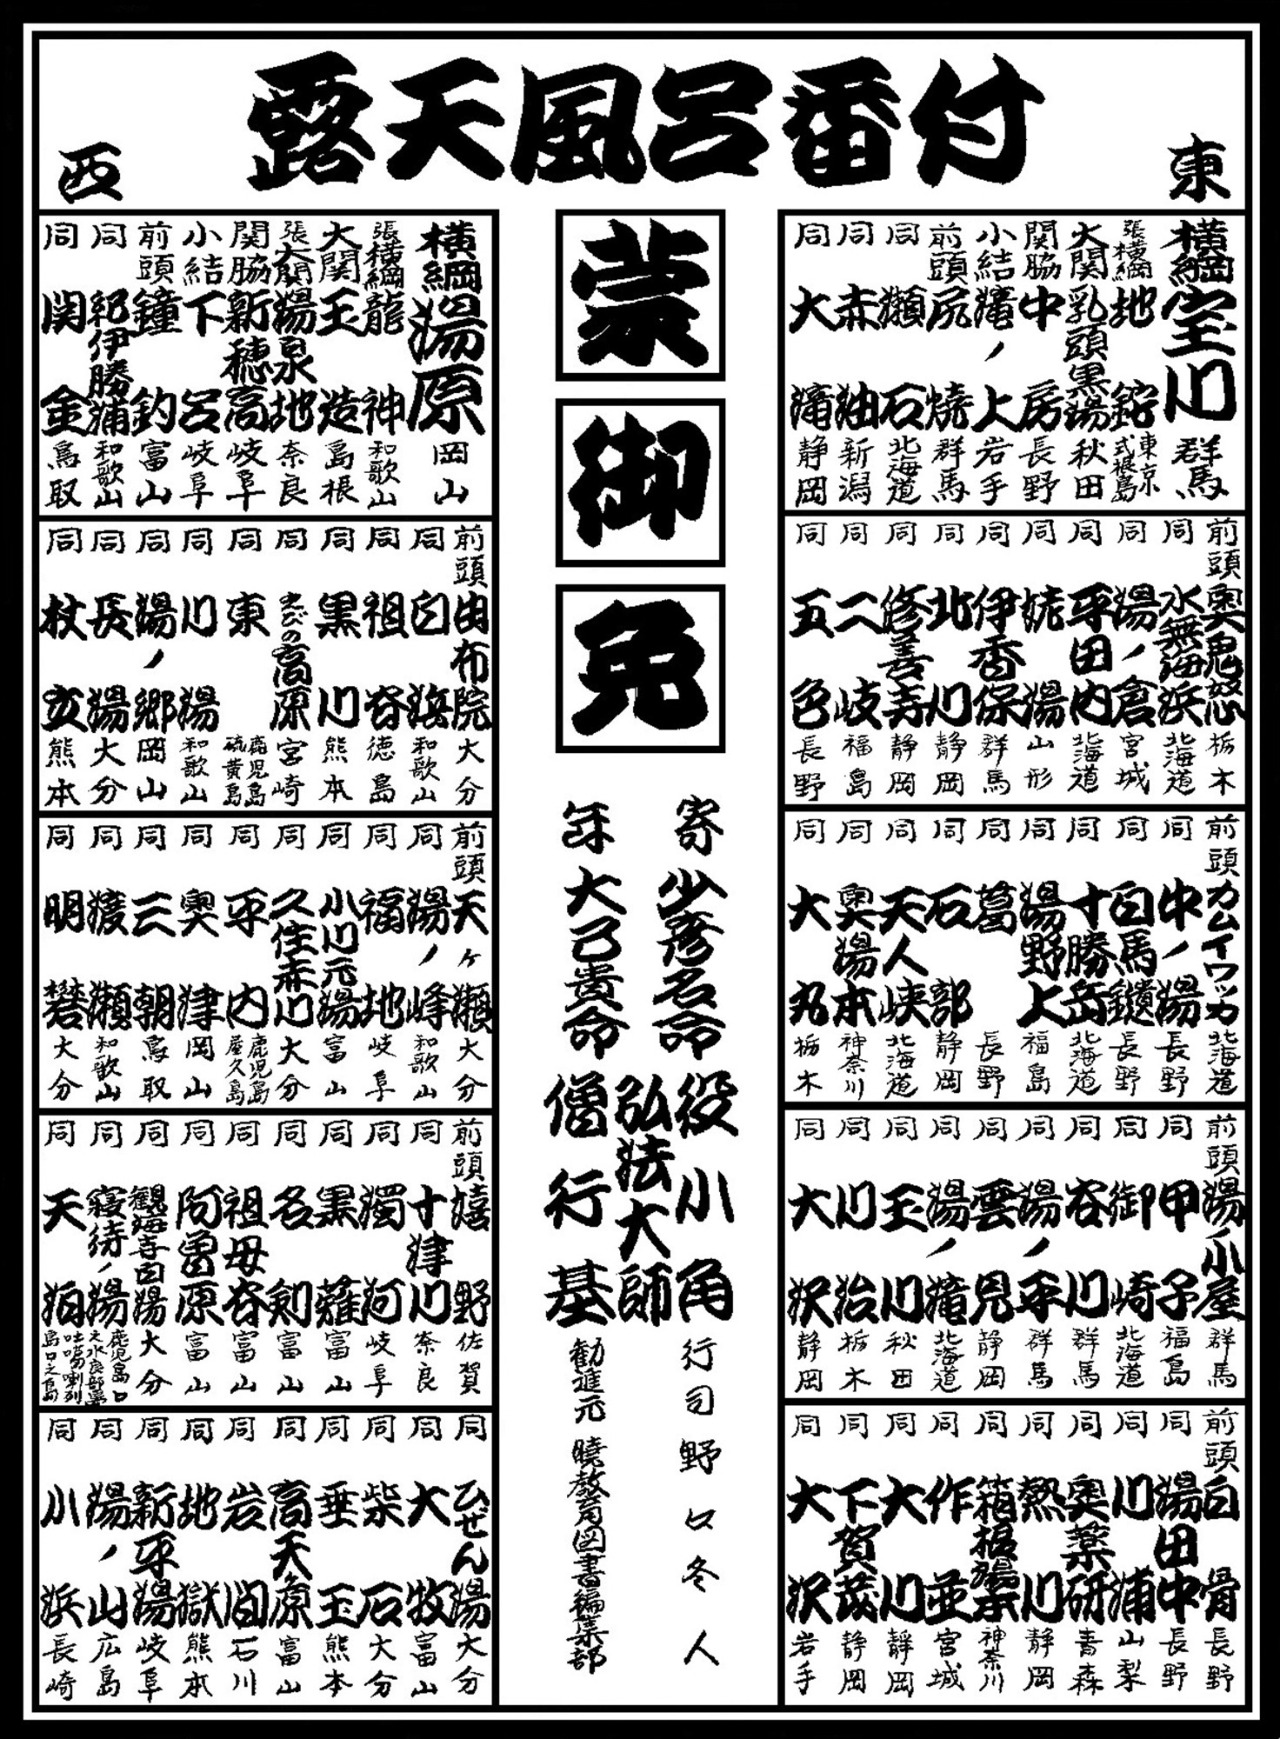 露天風呂番付
東
横綱 宝川 群馬
張横綱 地鉈 東京 式根島
大関 乳頭黒湯 秋田
関脇 中房 長野
小結 滝ノ上 岩手
前頭 尻焼 群馬
同 瀬石 北海道
同 赤紬 新潟
同 大滝 静岡
前頭 奥鬼怒 栃木
同 水無海浜 北海道
同 湯ノ倉 宮城
同 平田内 北海道
同 姥湯 山形
同 伊香保 群馬
同 北川 静岡
同 修善寺 静岡
同 二岐 福島
同 五色 長野
前頭 カムイワッカ 北海道
同 中ノ湯 長野
同 白馬鑓 長野
同 十勝岳 北海道
同 湯野上 福島
同 葛 長野
同 石部 静岡
同 天人峡 北海道
同 奥湯本 神奈川
同 大丸 栃木
前頭 湯ノ小屋 群馬
同 甲子 福島
同 御崎 北海道
同 谷川 群馬
同 湯ノ平 群馬
同 雲見 静岡
同 湯ノ滝 北海道
同 玉川 秋田
同 川治 栃木
同 大沢 静岡
前頭 白骨 長野
同 湯田中 長野
同 川浦 山梨
同 奥薬研 青森
同 熱川 静岡
同 箱根湯本 神奈川
同 作並 宮城
同 大川 静岡
同 下賀茂 静岡
同 大沢 岩手
蒙
御
免
寄 少彦名命
年 大己貴命
役小角
弘法大師
僧行基
行司 野口冬人
勧進元 暁教育図書編集部
西
横綱 湯原 岡山
張横綱 龍神 和歌山
大関 玉造 島根
張大関 湯泉地 奈良
関脇 新穂高 岐阜
小結 下呂 岐阜
前頭 鐘釣 富山
同 紀伊勝浦 和歌山
同 関金 鳥取
前頭 由布院 大分
同 白浜 和歌山
同 祖谷 徳島
同 黒川 熊本
同 えびの高原 宮崎
同 東 鹿児島 硫黄島
同 川湯 和歌山
同 湯ノ郷 岡山
同 長湯 大分
同 杖立 熊本
前頭 天ヶ瀬 大分
同 湯ノ峰 和歌山
同 福地 岐阜
同 小川元湯 富山
同 久住赤川 大分
同 平内 鹿児島 屋久島
同 奥津 岡山
同 三朝 鳥取
同 渡瀬 和歌山
同 明礬 大分
前頭 嬉野 佐賀
同 十津川 奈良
同 濁河 岐阜
同 黒薙 富山
同 名剣 富山
同 祖母谷 富山
同 阿曽原 富山
同 観海寺百湯 大分
同 寝待ノ湯 鹿児島 口之永良部島
同 天泊 吐噶喇列島口之島
同 ひぜん湯 大分
同 大牧 富山
同 柴石 大分
同 垂玉 熊本
同 高天原 富山
同 岩間 石川
同 地獄 熊本
同 新平湯 岐阜
同 湯ノ山 広島
同 小浜 長崎